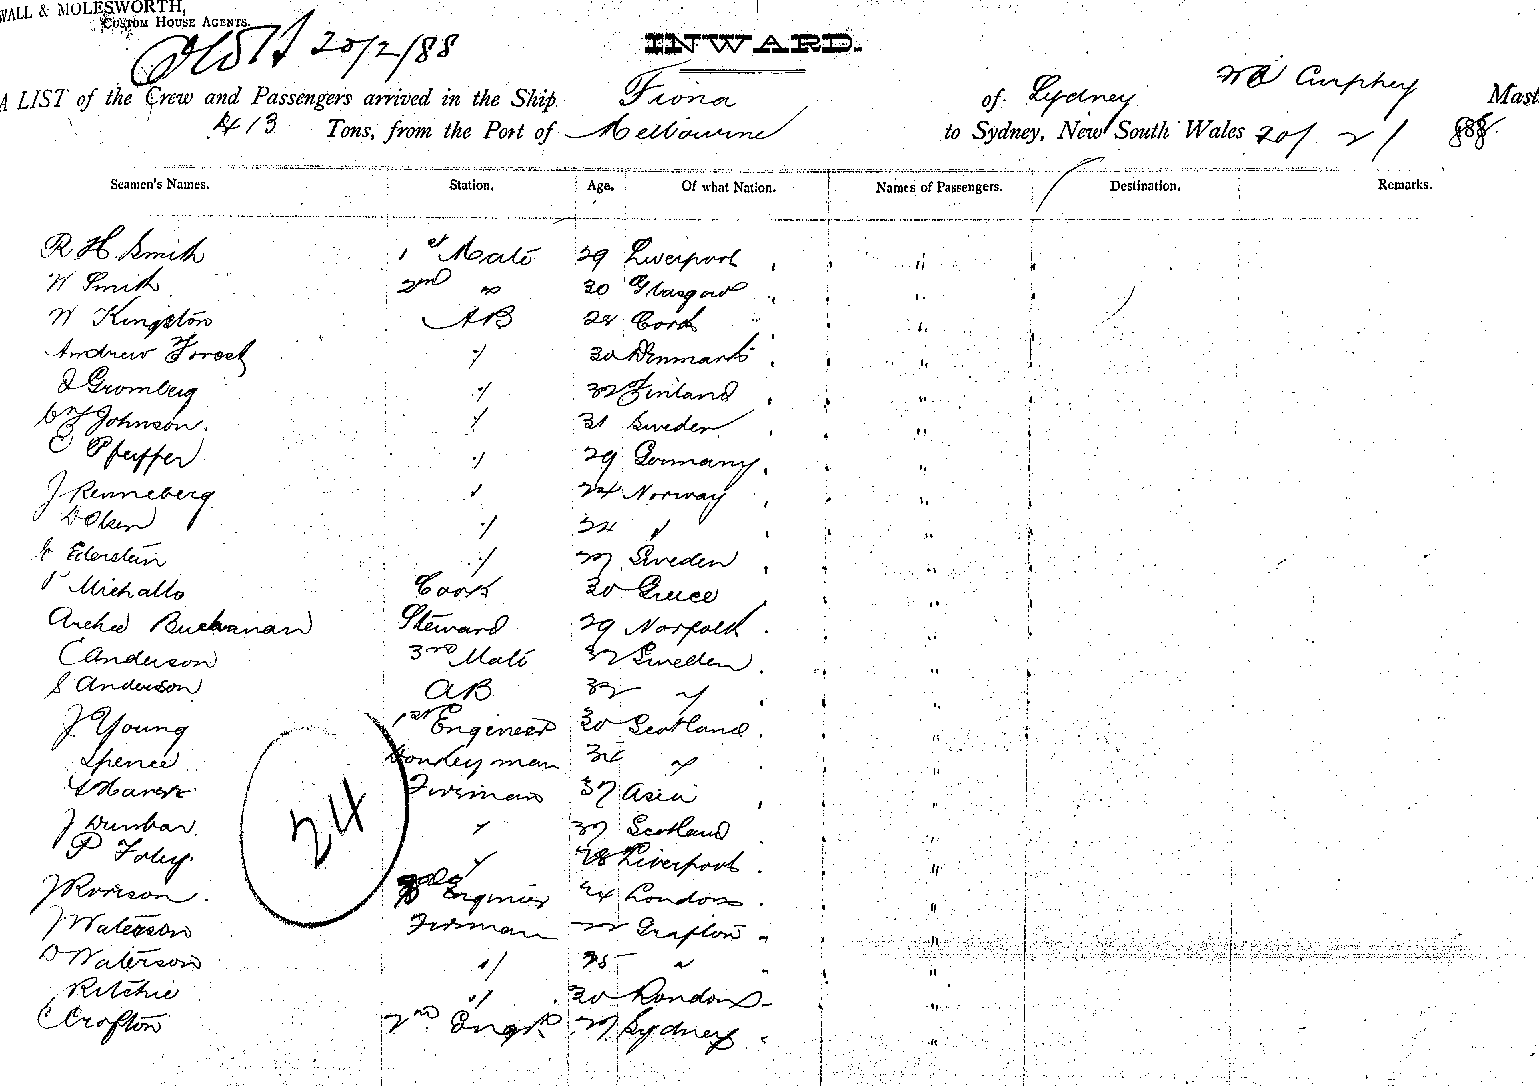 WALL & MOLESWORTH,
CUSTOM HOUSE AGENTS.
20/2/88
INWARD.
A LIST of the Crew and Passengers arrived in the Ship Fiona of Sydney Curphey Mast
413 Tons, from the Port of Melbourne to Sydney, New South Wales 20/ 2/ 88
Seamen's Names. Station. Age. Of what Nation. Names of Passengers. Destination. Remarks.
R H Smith 1st Mate 29 Liverpool "
W Smith 2nd " 30 Glasgow "
W Kingston AB 28 Cork "
Andrew Forest " 30 Denmark "
Gromberg " 32 Finland "
Johnson. " 31 Sweden "
C Pfeiffer " 29 Germany "
J Renneberg " 24 Norway "
D Olsen " 24 " "
Ederstein " 27 Sweden "
P Michallo Cook 30 Greece "
Archd Buchanan Steward 29 Norfolk "
C Anderson 3rd Mate 32 Sweden "
S Anderson AB 32 " "
J. Young 1st Engineer 30 Scotland "
Spence Donkeyman 34 " "
Fireman 37 Asia "
J Dunbar " 37 Scotland "
P Foley " 28 Liverpool "
J Engineer 24 London "
J Waterson Fireman 22 Grafton "
D Waterson " 25 " "
Ritchie " 30 London "
C Crofton 2nd Engr 27 Sydney "
24